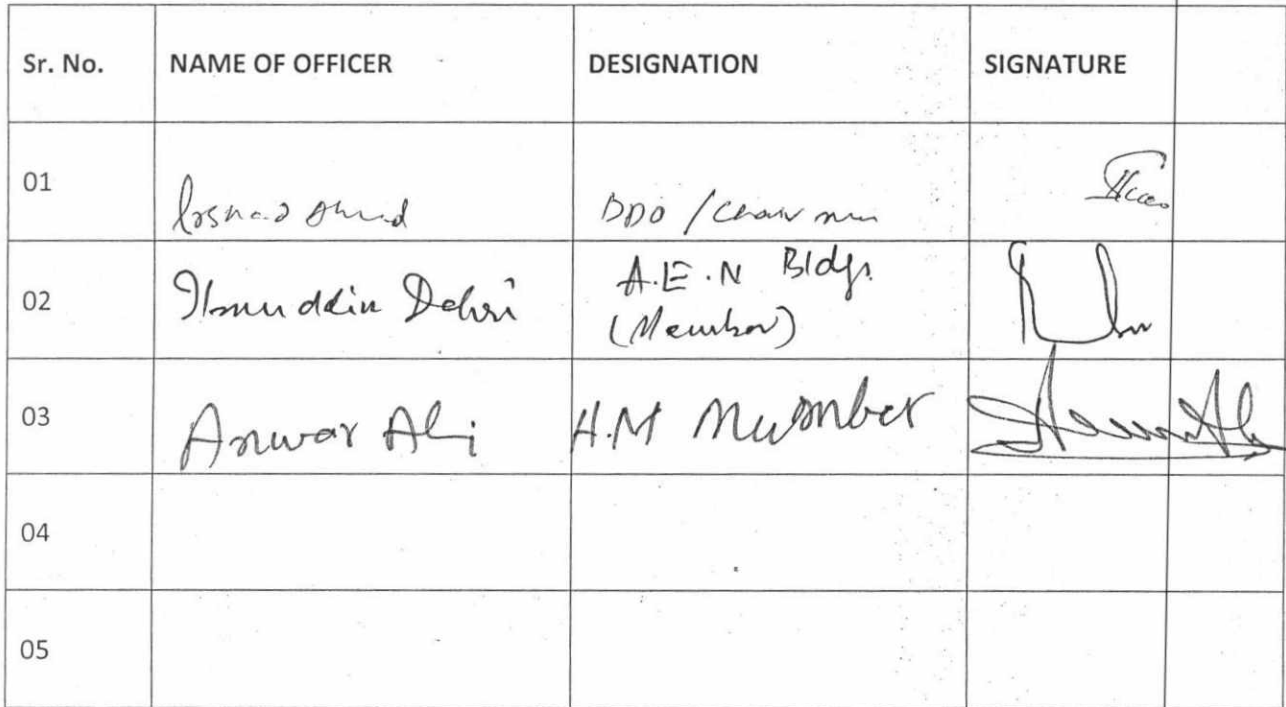 Sr. No. NAME OF OFFICER DESIGNATION SIGNATURE
01 DDO / Chairman
02 Dehri A.E.N Bldgs.
(Member)
03 Anwar Ali H.M Member
04
05